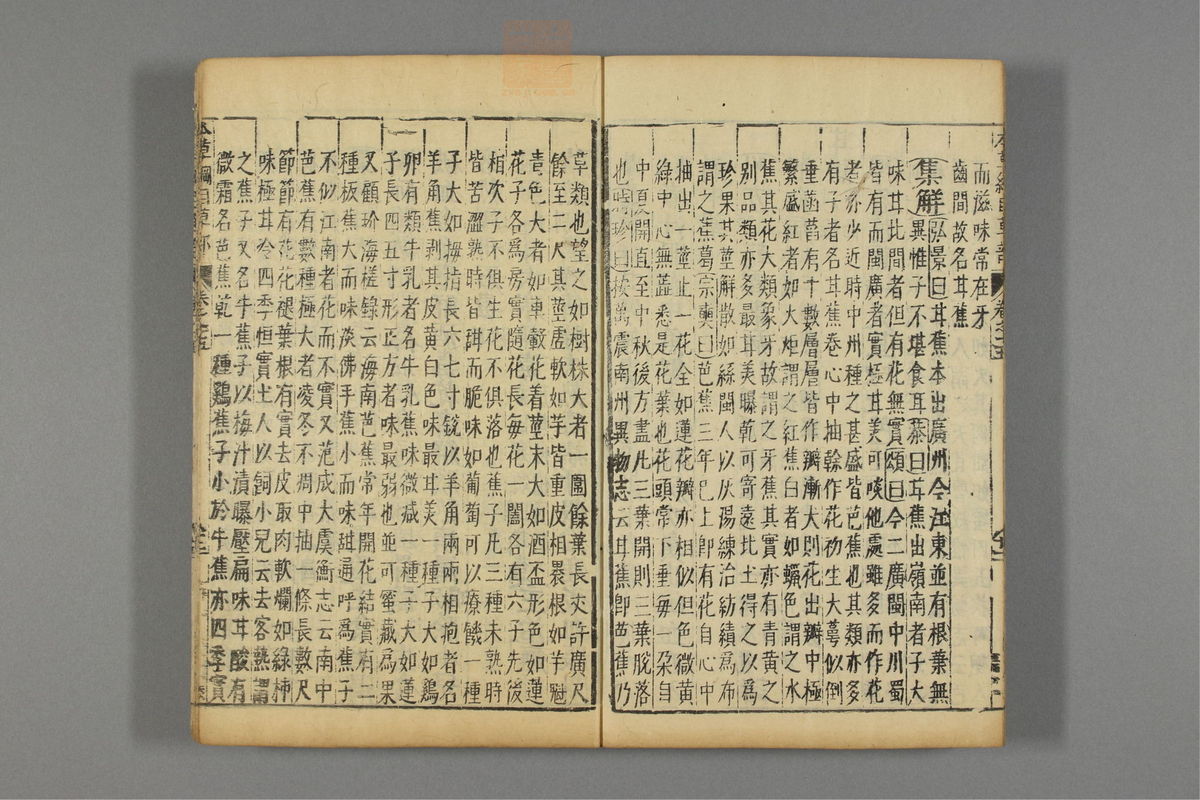 而滋味常在牙
齒間故名耳蕉
集解弘景曰耳蕉本出廣州今江東並有根葉無
異惟子不堪食耳恭曰耳蕉出嶺南者子大
味耳北間者但有花無實頌曰今二廣閩中川蜀
皆有而閩廣者實極耳美可啖他處雖多而作花
者亦少近時中州種之甚盛皆芭蕉也其類亦多
有子者名耳蕉卷心中抽幹作花初生大萼似倒
垂菡萏有十數層層皆作瓣漸大則花出瓣中極
繁盛紅者如火炬謂之紅蕉白者如蠟色謂之水
蕉其花大類象牙故謂之牙蕉其實亦有青黃之
別品類亦多最耳美曝乾可寄遠北土得之以為
珍果其莖解散如絲閩人以灰湯練治紡績為布
謂之蕉葛宗奭曰芭蕉三年巳上即有花自心中
抽出一莖止一花全如蓮花瓣亦相似但色微黃
綠中心無蕋悉是花葉也花頭常下垂每一朵自
中夏開直至中秋後方盡凡三葉開則三葉脫落
也時珍曰按萬震南州異物志云耳蕉即芭蕉乃
草類也望之如樹株大者一圍餘葉長丈許廣尺
餘至二尺其莖虛軟如芋皆重皮相裹根如芋魁
青色大者如車轂花着莖末大如酒盃形色如蓮
花子各為房實隨花長每花一闔各有六子先後
相次子不俱生花不俱落也蕉子凡三種未熟時
皆苦澀熟時皆甜而脆味如葡萄可以療饑一種
子大如拇指長六七寸銳以羊角兩兩相抱者名
羊角蕉剥其皮黃白色味最耳美一種子大如鷄
卵有類牛乳者名牛乳蕉味微減一種子大如蓮
子長四五寸形正方者味最弱也並可蜜藏為果
又顧玠海槎錄云海南芭蕉常年開花結實有二
種板蕉大而味淡佛手蕉小而味甜通呼為蕉子
不似江南者花而不實又范成大虞衡志云南中
芭蕉有數種極大者凌冬不凋中抽一條長數尺
節節有花花褪葉根有實去皮取肉軟爛如綠柿
味極耳冷四季恒實土人以飼小兒云去客熱謂
之蕉子又名牛蕉子以梅汁漬曝壓扁味耳酸有
微霜名芭蕉乾一種鷄蕉子小於牛蕉亦四季實